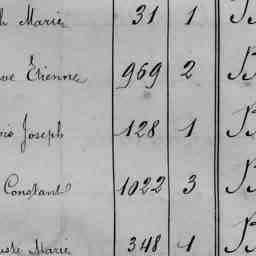 Marie 31 1 B
Etienne 969 2 B
Joseph 128 1 B
Constant 1022 3 B
Marie 348 1 B